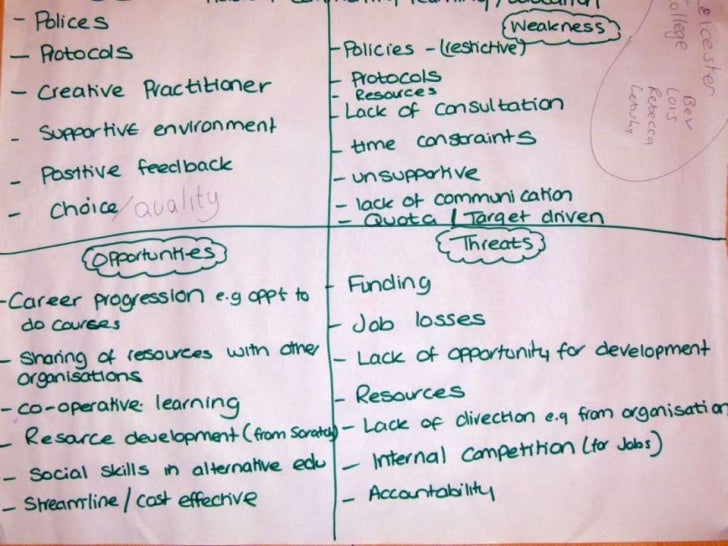 - Polices
- Protocols
- Creative Practitioner
- Supportive environment
- Positive feedback
- Choice/quality
Weakness
- Policies - (restictive)
- Protocols
- Resources
- Lack of consultation
- time constraints
- unsupportive
- lack of communication
- Quota / Target driven
Leicester
College
Bev
Lois
Rebecca
Opportunties
- Career progression e.g oppt to
do courses
- Sharing of resources with other
organisations
- co-operative learning
- Resorce development (from Scratch)
- Social skills in alternative edu
- Streamline / cost effective
Threats
- Funding
- Job losses
- Lack of opportunity for development
- Resources
- Lack of direction e.g from organisation
- Internal Competition (for Jobs)
- Accountability